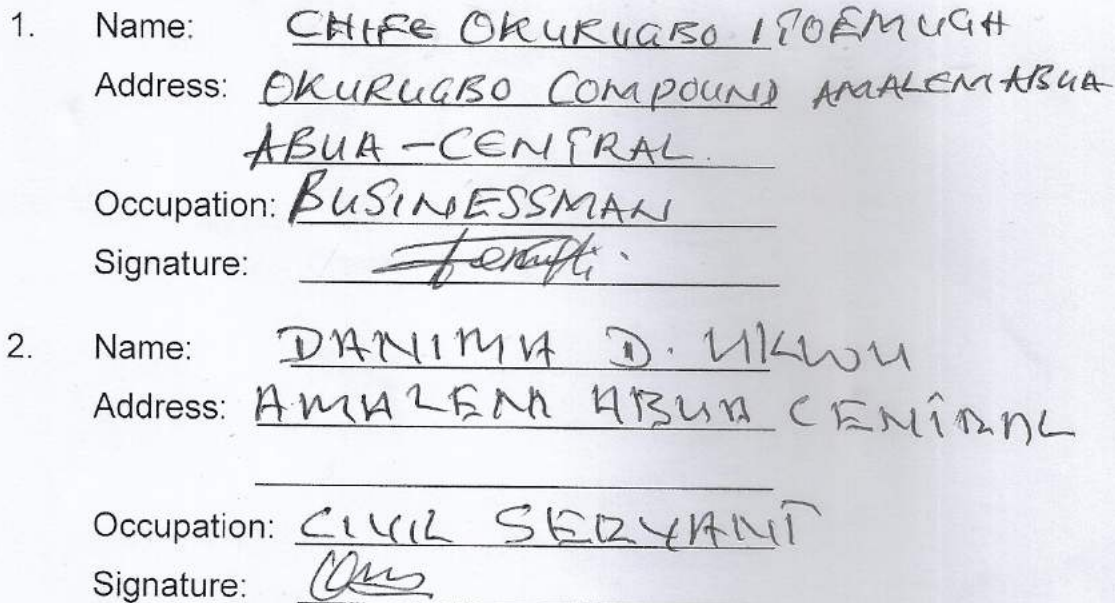 1. Name: CHIEF OKURUGBO ITOEMUGH
Address: OKURUGBO COMPOUND AMALEM ABUA
ABUA-CENTRAL.
Occupation: BUSINESSMAN
Signature:
2. Name: DANIMA D. UKWU
Address: AMALEM ABUA CENTRAL
Occupation: CIVIL SERVANT
Signature: